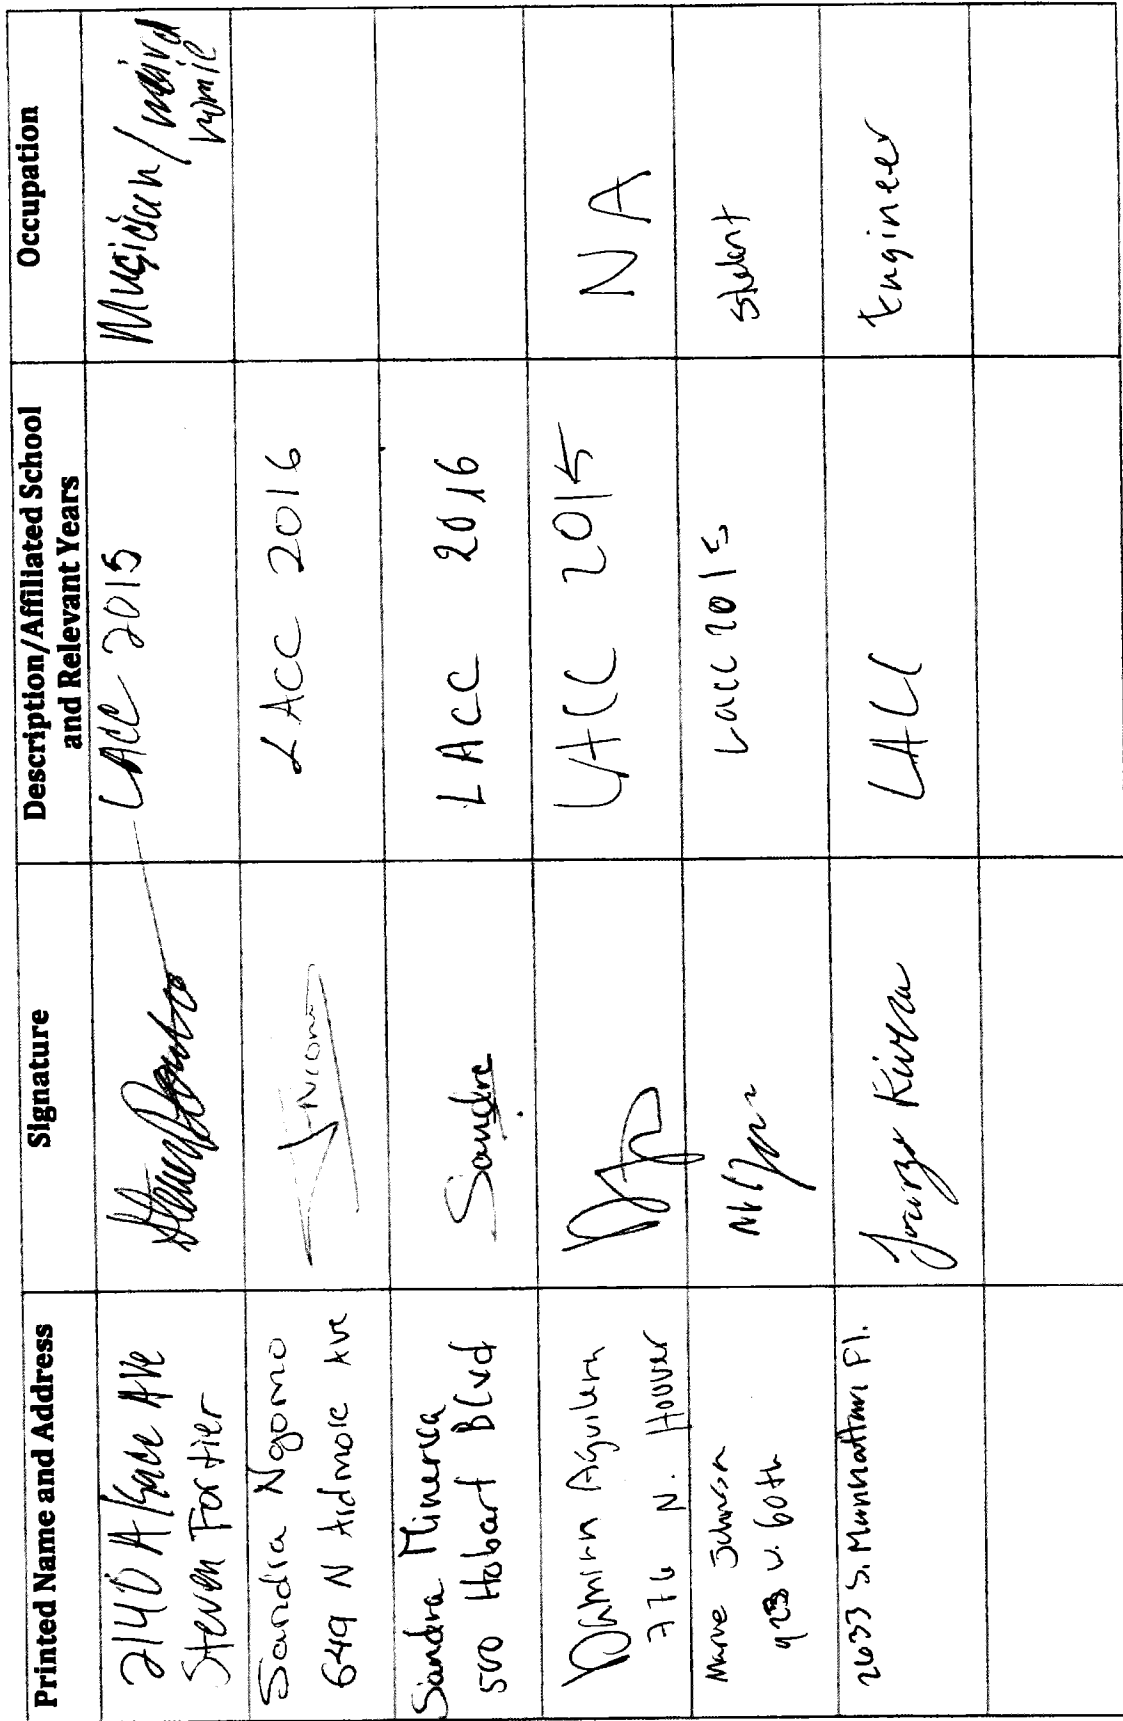 Printed Name and Address
Signature
Description/Affiliated School
and Relevant Years
Occupation
2140 Alsace Ave
Steven Fortier
LACC 2015
Musician/
Sandra Ngomo
649 N Ardmore Ave
LACC 2016
Sandra Minerva
500 Hobart BLvd
Sandra
LACC 2016
Damian Aguilera
776 N. Hoover
LACC 2015
NA
Johnson
W. 60th
Lacc 2015
Student
2633 S. Manhattan Pl.
LACC
Engineer